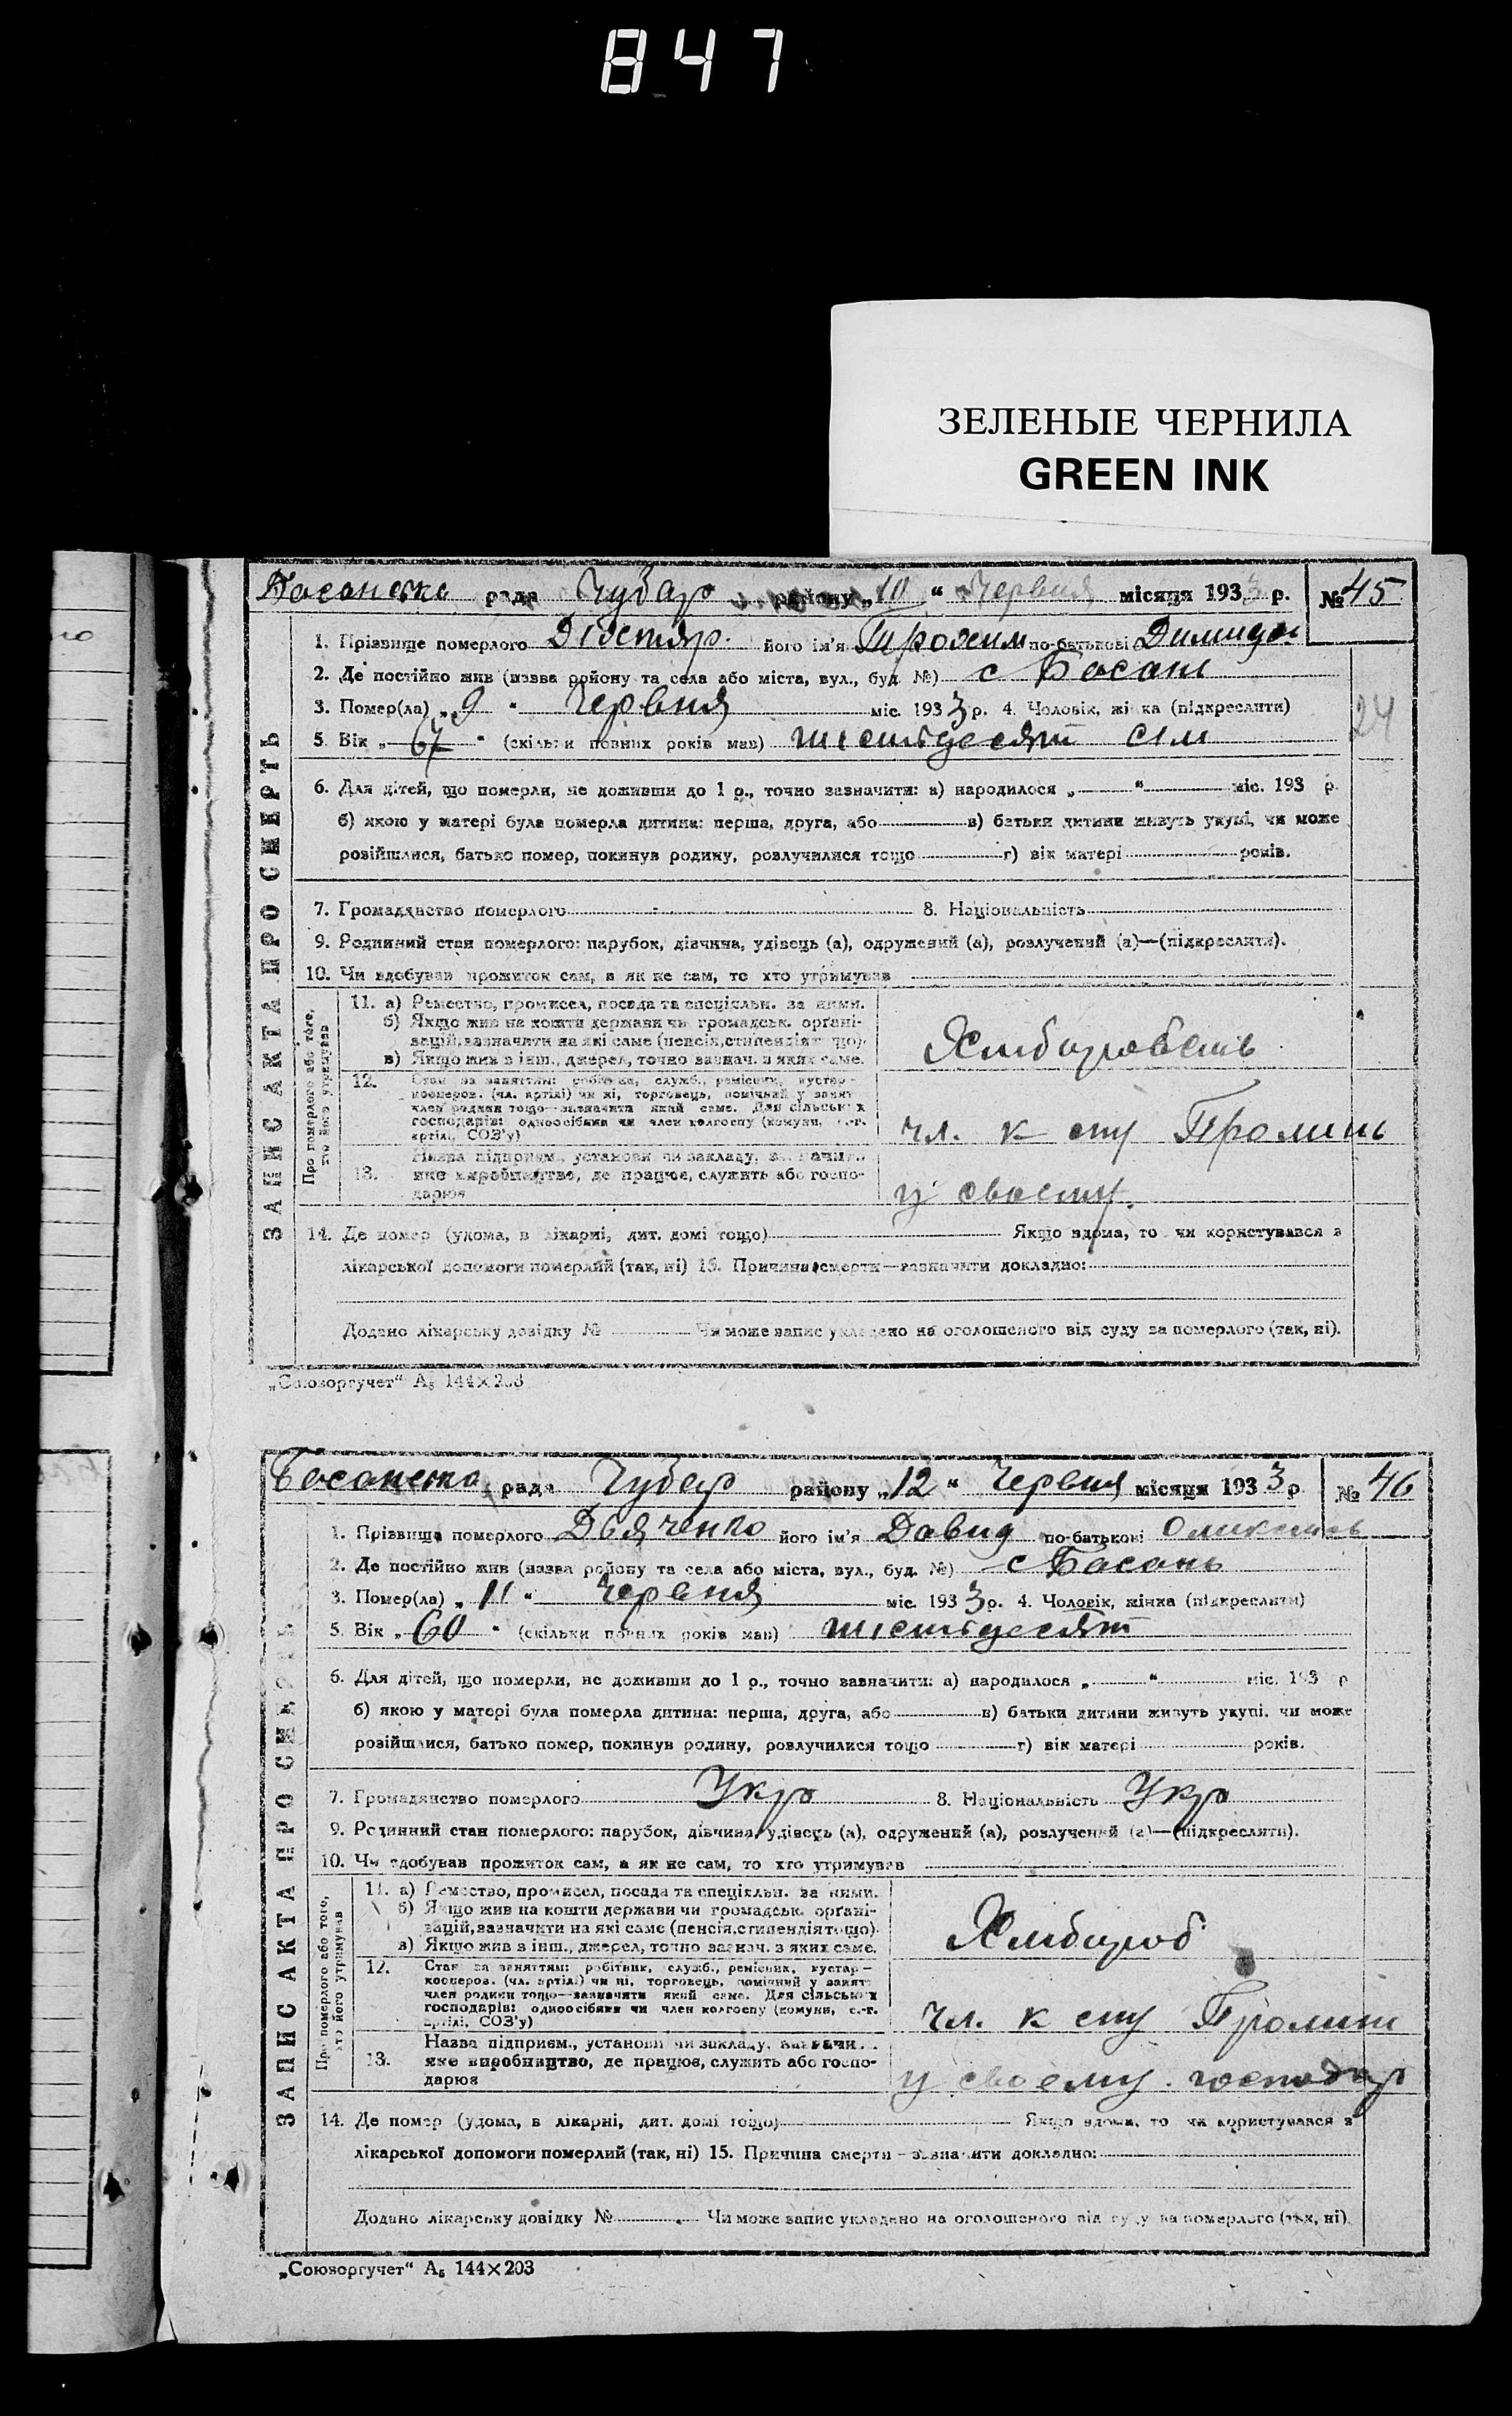 847
ЗЕЛЕНЫЕ ЧЕРНИЛА
GREEN INK
Басанська рада Чубар району „10“ Червня місяця 1933 р. №45
1. Прізвище померлого Дігтяр його ім'я Трохим по-батькові
2. Де постійно жив (назва району та села або міста, вул., буд. №) с Басань
3. Помер(ла) „9“ Червня міс. 1933 р. 4. Чоловік, жінка (підкреслити)
24
5. Вік „67“ (скільки повних років мав) шістьдесят сім
6. Для дітей, що померли, не доживши до 1 р., точно зазначити: а) народилося „ “ міс. 193 р.
б) якою у матері була померла дитина: перша, друга, або в) батьки дитини живуть укупі, чи може
розійшлися, батько помер, покинув родину, розлучилися тощо г) вік матері років.
7. Громадянство померлого 8. Національність
9. Родинний стан померлого: парубок, дівчина, удівець (а), одружений (а), розлучений (а)—(підкреслити).
10. Чи здобував прожиток сам, а як не сам, то хто утримував
ЗАПИС АКТА ПРО СМЕРТЬ
Про померлого або того, хто його утримував
11. а) Ремество, промисел, посада та спеціяльн. за ними.
б) Якщо жив на кошти держави чи громадськ. органі-
зацій, зазначити на які саме (пенсія, стипендія тощо).
в) Якщо жив з інш., джерел, точно зазнач. з яких саме.
12. Стан за заняттям: робітник, служб., ремісник, кустар—
кооперов. (чл. артілі) чи ні, торговець, помічний у занят.
член родини тощо—зазначити який саме. Для сільських
господарів: одноосібник чи член колгоспу (комуни, с.-г.
артілі, СОЗ'у)
чл. к спу Промінь
13. Назва підприєм., установи чи закладу, зазначити
яке виробництво, де працює, служить або госпо-
дарює
у своєму.
14. Де помер (удома, в лікарні, дит. домі тощо) Якщо вдома, то чи користувався з
лікарської допомоги померлий (так, ні) 15. Причина смерти—зазначити докладно:
Додано лікарську довідку № Чи може запис укладено на оголошеного від суду за померлого (так, ні).
„Союзоргучет“ А₅ 144×203
Басанська рада Чубар району „12“ Червня місяця 1933 р №46
1. Прізвище померлого Дьяченко його ім'я Давид по-батькові
2. Де постійно жив (назва району та села або міста, вул., буд. №) с Басань
3. Помер(ла) „11“ Червня міс. 1933 р. 4. Чоловік, жінка (підкреслити)
5. Вік „60“ (скільки повних років мав) шістьдесят
6. Для дітей, що померли, не доживши до 1 р., точно зазначити: а) народилося „ “ міс. 193 р
б) якою у матері була померла дитина: перша, друга, або в) батьки дитини живуть укупі. чи може
розійшлися, батько помер, покинув родину, розлучилися тощо г) вік матері років.
7. Громадянство померлого Укр 8. Національність Укр
9. Родинний стан померлого: парубок, дівчина, удівець (а), одружений (а), розлучений (а)—(підкреслити).
10. Чи здобував прожиток сам, а як не сам, то хто утримував
ЗАПИС АКТА ПРО СМЕРТЬ
Про померлого або того, хто його утримував
11. а) Ремество, промисел, посада та спеціяльн. за ними.
б) Якщо жив на кошти держави чи громадськ. органі-
зацій, зазначити на які саме (пенсія, стипендія тощо)
в) Якщо жив з інш., джерел, точно зазнач. з яких саме.
Хлібороб
12. Стан за заняттям: робітник, служб., ремісник, кустар—
кооперов. (чл. артілі) чи ні, торговець, помічний у занят.
член родини тощо—зазначити який саме. Для сільських
господарів: одноосібник чи член колгоспу (комуни, с.-г.
артілі, СОЗ'у)
чл. к спу Промінь
13. Назва підприєм., установи чи закладу, зазначити
яке виробництво, де працює, служить або госпо-
дарює
у своєму господар
14. Де помер (удома, в лікарні, дит. домі тощо) Якщо вдома, то чи користувався з
лікарської допомоги померлий (так, ні) 15. Причина смерти—зазначити докладно:
Додано лікарську довідку № Чи може запис укладено на оголошеного від суду за померлого (так, ні).
„Союзоргучет“ А₅ 144×203